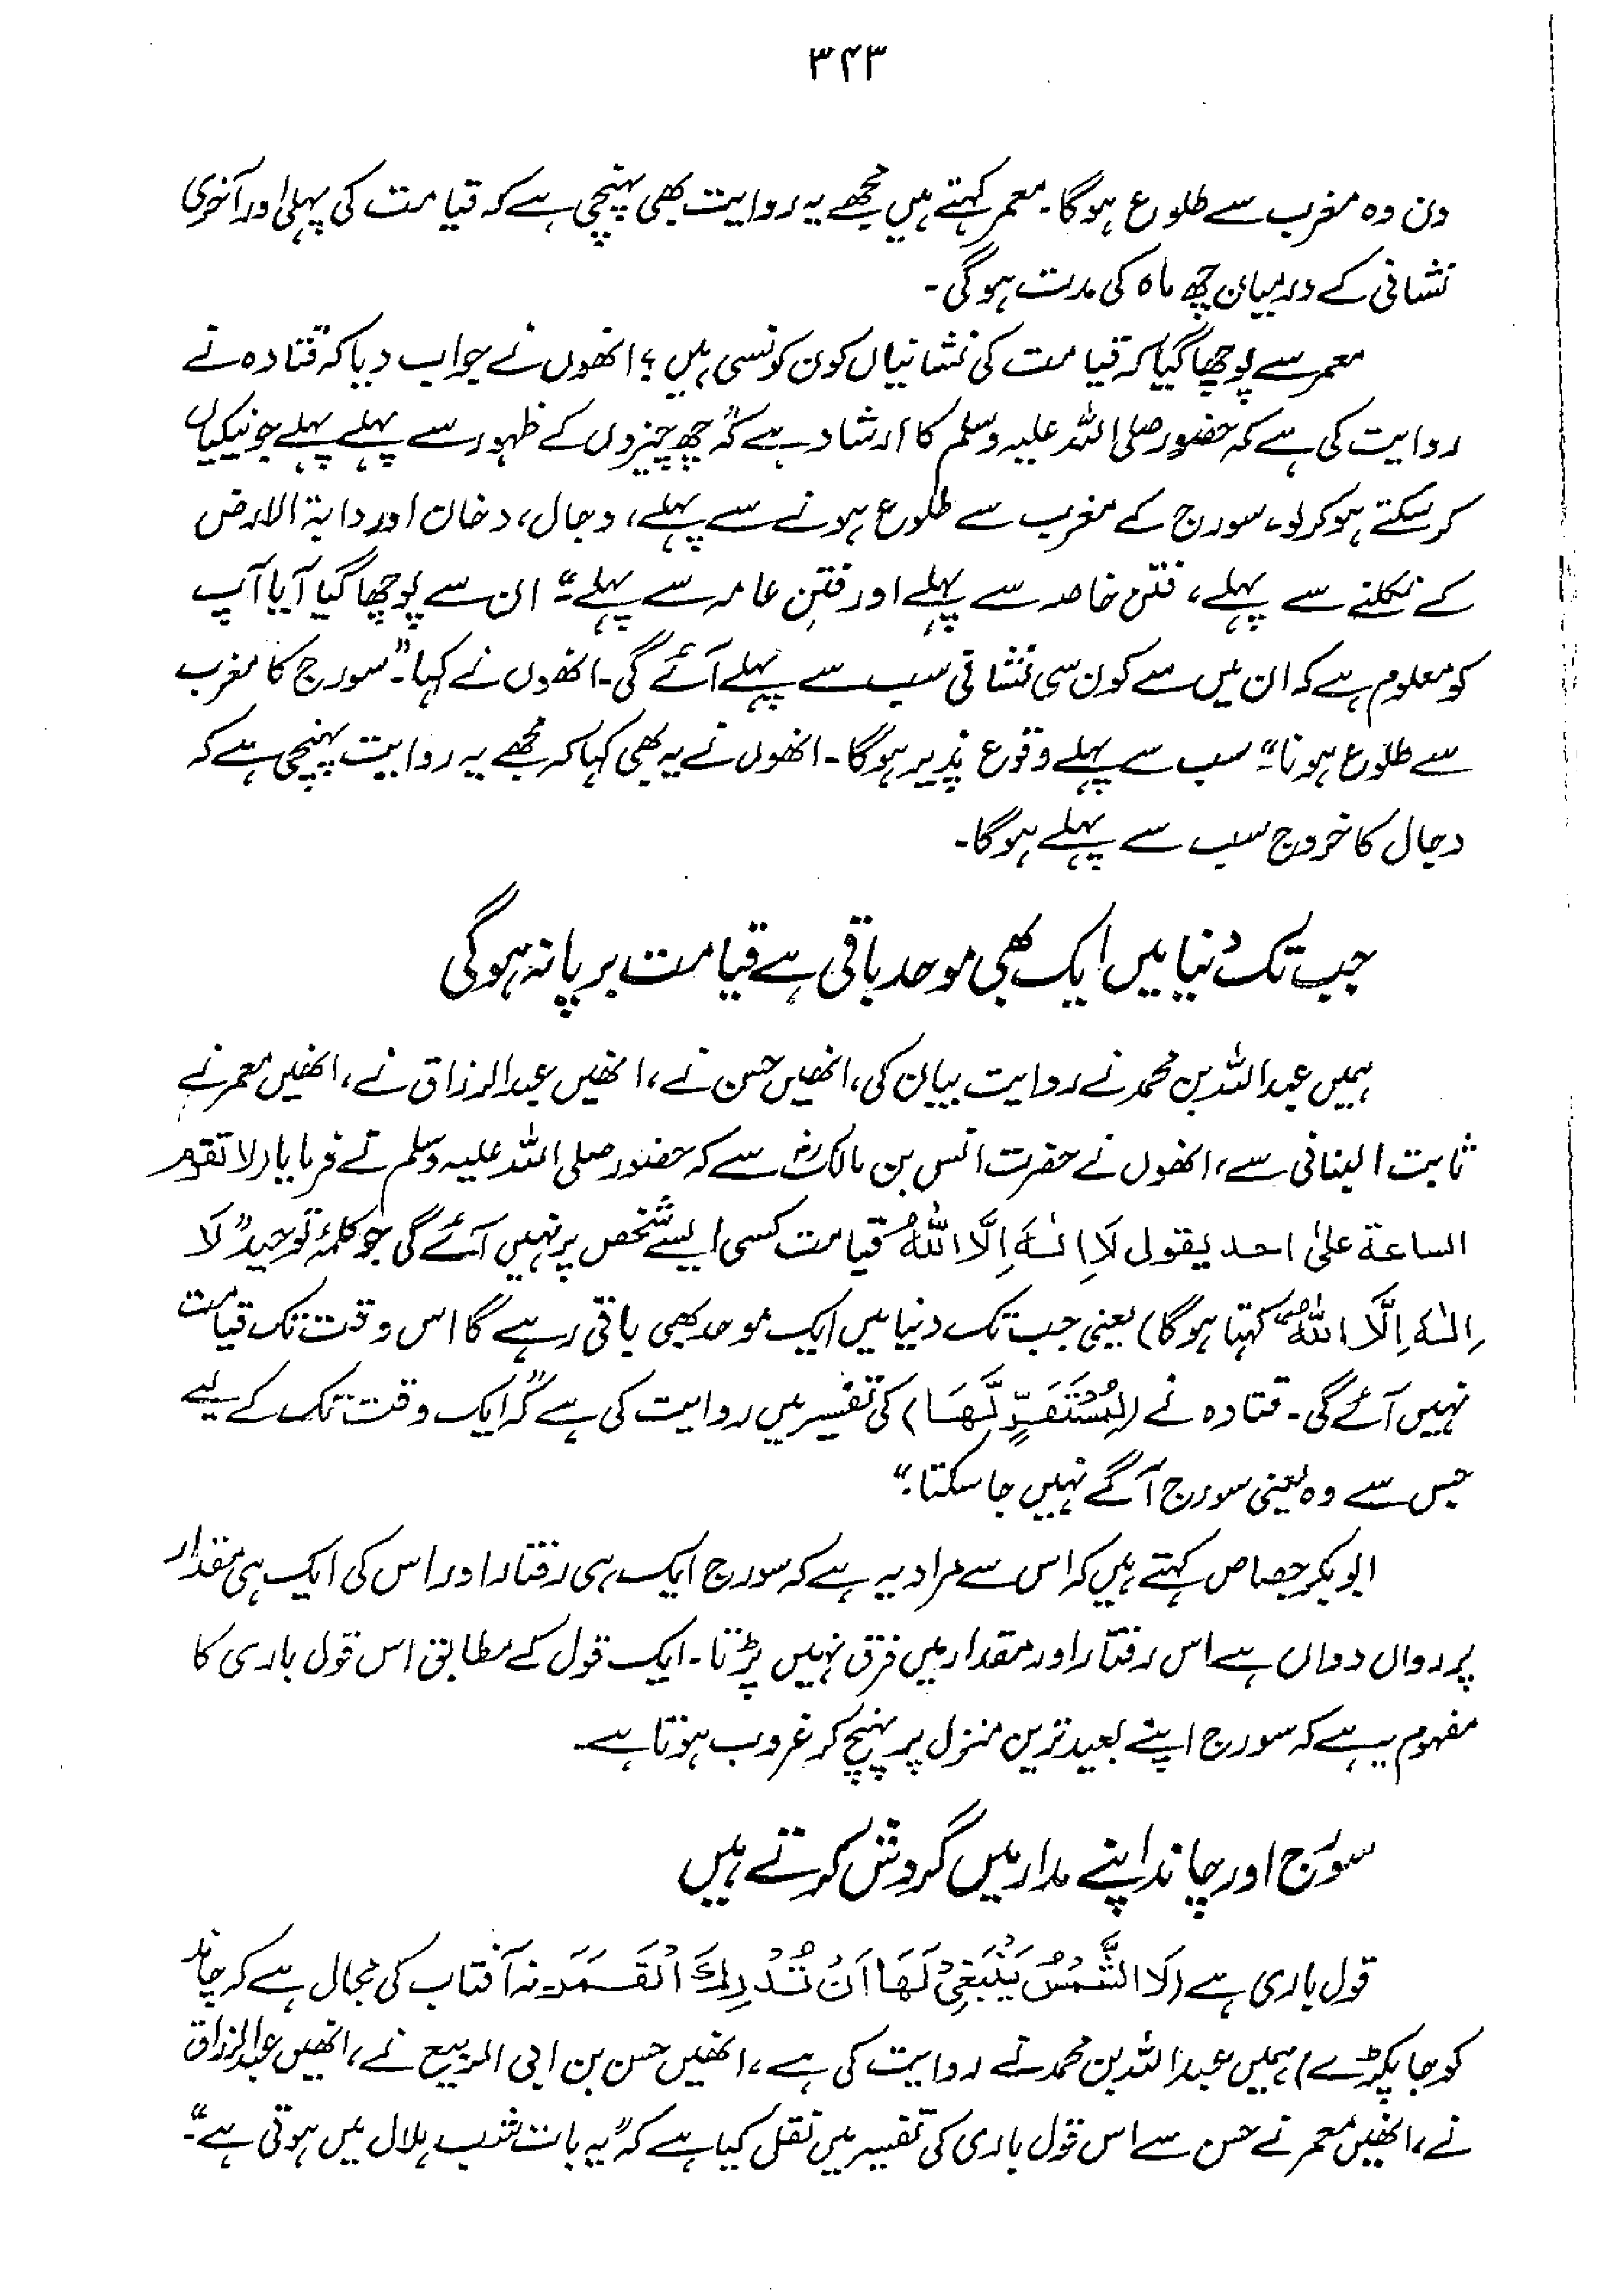 ۳۴۳
دن وہ مغرب سے طلوع ہوگا۔ معمر کہتے ہیں مجھے یہ روایت بھی پہنچی ہے کہ قیامت کی پہلی اور آخری
نشانی کے درمیان چھ ماہ کی مدت ہوگی۔
معمر سے پوچھا گیا کہ قیامت کی نشانیاں کون کونسی ہیں؟ انھوں نے جواب دیا کہ قتادہ نے
روایت کی ہے کہ حضور صلی اللہ علیہ وسلم کا ارشاد ہے کہ "چھ چیزوں کے ظہور سے پہلے پہلے جو نیکیاں
کر سکتے ہو کر لو، سورج کے مغرب سے طلوع ہونے سے پہلے، دجال، دخان اور دابۃ الارض
کے نکلنے سے پہلے، فتن خاصہ سے پہلے اور فتنِ عامہ سے پہلے"۔ ان سے پوچھا گیا آیا آپ
کو معلوم ہے کہ ان میں سے کون سی نشانی سب سے پہلے آئے گی۔ انھوں نے کہا۔ "سورج کا مغرب
سے طلوع ہونا"۔ سب سے پہلے وقوع پذیر ہوگا۔ انھوں نے یہ بھی کہا کہ مجھے یہ روایت پہنچی ہے کہ
دجال کا خروج سب سے پہلے ہوگا۔
جب تک دُنیا میں ایک بھی موحد باقی ہے قیامت برپا نہ ہوگی
ہمیں عبداللہ بن محمد نے روایت بیان کی، انھیں حسن نے، انھیں عبدالرزاق نے، انھیں معمر نے
ثابت البنانی سے، انھوں نے حضرت انس بن مالکؓ سے کہ حضور صلی اللہ علیہ وسلم نے فرمایا (لا تقوم
الساعۃ علیٰ احد یقول لَا اِلٰہَ اِلَّا اللّٰہُ قیامت کسی ایسے شخص پر نہیں آئے گی جو کلمۂ توحید "لَا
اِلٰہَ اِلَّا اللّٰہُ" کہتا ہوگا) یعنی جب تک دنیا میں ایک موحد بھی باقی رہے گا اس وقت تک قیامت
نہیں آئے گی۔ قتادہ نے (لِمُسْتَقَرٍّ لَّھَا) کی تفسیر میں روایت کی ہے کہ "ایک وقت تک کے لیے
جس سے وہ یعنی سورج آگے نہیں جا سکتا۔"
ابوبکر جصاص کہتے ہیں کہ اس سے مراد یہ ہے کہ سورج ایک ہی رفتار اور اس کی ایک ہی مقدار
پر رواں دواں ہے اس رفتار اور مقدار میں فرق نہیں پڑتا۔ ایک قول کے مطابق اس قول باری کا
مفہوم یہ ہے کہ سورج اپنے بعید ترین منزل پر پہنچ کر غروب ہوتا ہے۔
سُورج اور چاند اپنے مدار میں گردش کرتے ہیں
قول باری ہے (لَا الشَّمْسُ یَنْبَغِیْ لَھَا اَنْ تُدْرِكَ الْقَمَرَ۔ نہ آفتاب کی مجال ہے کہ چاند
کو جا پکڑے) ہمیں عبداللہ بن محمد نے روایت کی ہے، انھیں حسن بن ابی الربیع نے، انھیں عبدالرزاق
نے، انھیں معمر نے حسن سے اس قول باری کی تفسیر میں نقل کیا ہے کہ "یہ بات شب ہلال میں ہوتی ہے"۔